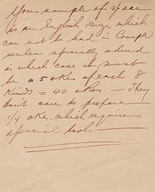 Your sample of space
is an English size which
can not be had in Couple
unless specially ordered
in which case it must
be a 50 kes of each 8
Kinds = 40 okes — They
don't care to prepare
1/4 oke. which requires
special tools.